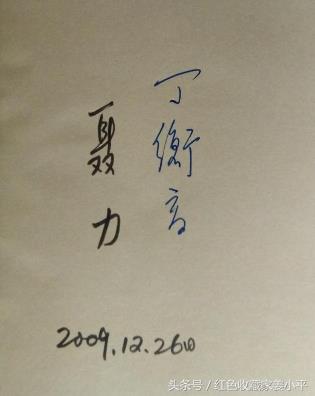 丁衡高
聂力
2009.12.26日
头条号 / 红色收藏家姜小平